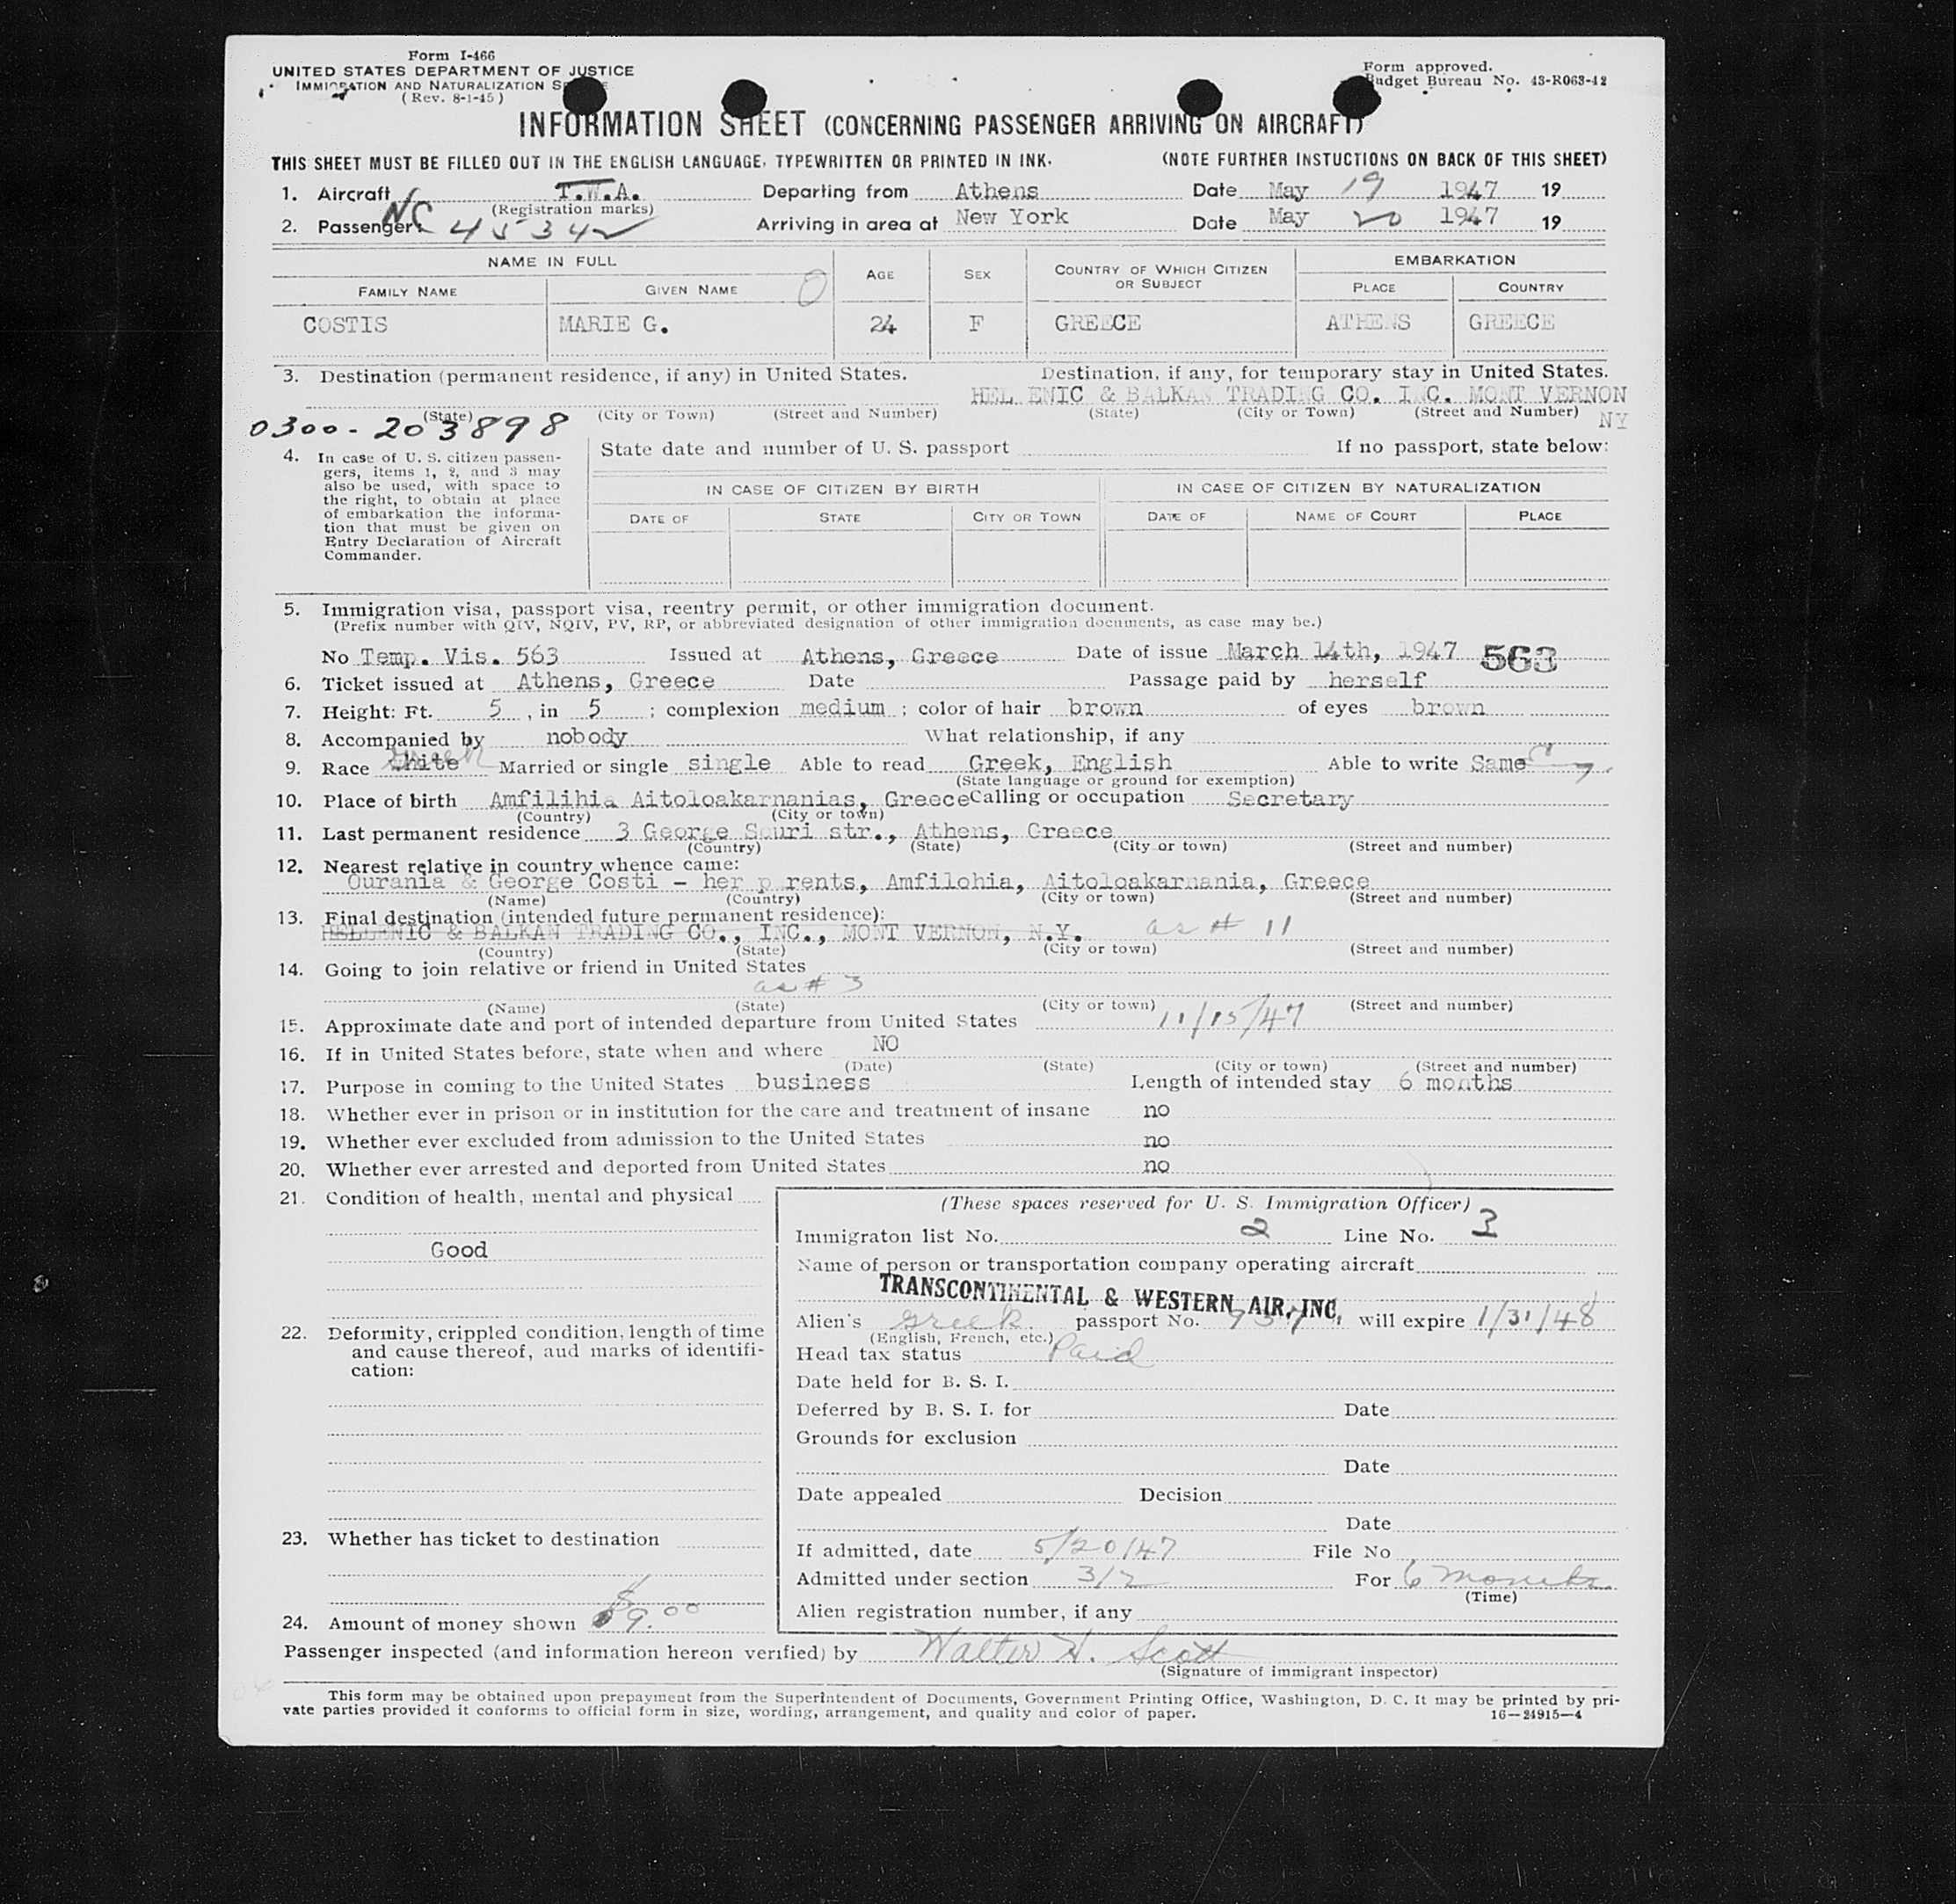 Form I-466
UNITED STATES DEPARTMENT OF JUSTICE
IMMIGRATION AND NATURALIZATION
(Rev. 8-1-45)
Form approved.
Budget Bureau No. 43-R063-42
INFORMATION SHEET (CONCERNING PASSENGER ARRIVING ON AIRCRAFT)
THIS SHEET MUST BE FILLED OUT IN THE ENGLISH LANGUAGE, TYPEWRITTEN OR PRINTED IN INK. (NOTE FURTHER INSTUCTIONS ON BACK OF THIS SHEET)
1. Aircraft T.W.A. Departing from Athens Date May 19 1947 19
(Registration marks)
NC 45342
2. Passenger: Arriving in area at New York Date May 20 1947 19
NAME IN FULL AGE SEX COUNTRY OF WHICH CITIZEN OR SUBJECT EMBARKATION
FAMILY NAME GIVEN NAME PLACE COUNTRY
COSTIS MARIE G. 24 F GREECE ATHENS GREECE
3. Destination (permanent residence, if any) in United States. Destination, if any, for temporary stay in United States.
HEL ENIC & BALKAN TRADING CO. INC. MONT VERNON
NY
(State) (City or Town) (Street and Number) (State) (City or Town) (Street and Number)
0300-203898
4. In case of U. S. citizen passen-
gers, items 1, 2, and 3 may
also be used, with space to
the right, to obtain at place
of embarkation the informa-
tion that must be given on
Entry Declaration of Aircraft
Commander.
State date and number of U. S. passport If no passport, state below:
IN CASE OF CITIZEN BY BIRTH IN CASE OF CITIZEN BY NATURALIZATION
DATE OF STATE CITY OR TOWN DATE OF NAME OF COURT PLACE
5. Immigration visa, passport visa, reentry permit, or other immigration document.
(Prefix number with QIV, NQIV, PV, RP, or abbreviated designation of other immigration documents, as case may be.)
No Temp. Vis. 563 Issued at Athens, Greece Date of issue March 14th, 1947 563
6. Ticket issued at Athens, Greece Date Passage paid by herself
7. Height: Ft. 5, in 5; complexion medium; color of hair brown of eyes brown
8. Accompanied by nobody What relationship, if any
9. Race white Greek Married or single single Able to read Greek, English Able to write Same
(State language or ground for exemption)
10. Place of birth Amfilihia Aitoloakarnanias, Greece Calling or occupation Secretary
(Country) (City or town)
11. Last permanent residence 3 George Souri str., Athens, Greece
(Country) (State) (City or town) (Street and number)
12. Nearest relative in country whence came:
Ourania & George Costi - her p rents, Amfilohia, Aitoloakarnania, Greece
(Name) (Country) (City or town) (Street and number)
13. Final destination (intended future permanent residence):
HELLENIC & BALKAN TRADING CO., INC., MONT VERNON, N.Y. as # 11
(Country) (State) (City or town) (Street and number)
14. Going to join relative or friend in United States
as # 3
(Name) (State) (City or town) (Street and number)
15. Approximate date and port of intended departure from United States 11/15/47
16. If in United States before, state when and where NO
(Date) (State) (City or town) (Street and number)
17. Purpose in coming to the United States business Length of intended stay 6 months
18. Whether ever in prison or in institution for the care and treatment of insane no
19. Whether ever excluded from admission to the United States no
20. Whether ever arrested and deported from United States no
21. Condition of health, mental and physical
Good
22. Deformity, crippled condition, length of time
and cause thereof, aud marks of identifi-
cation:
23. Whether has ticket to destination
24. Amount of money shown $ 9.00
(These spaces reserved for U. S. Immigration Officer)
Immigraton list No. 2 Line No. 3
Name of person or transportation company operating aircraft
TRANSCONTINENTAL & WESTERN AIR, INC.
Alien's Greek passport No. will expire 1/31/48
(English, French, etc.)
Head tax status Paid
Date held for B. S. I.
Deferred by B. S. I. for Date
Grounds for exclusion
Date
Date appealed Decision
Date
If admitted, date 5/20/47 File No
Admitted under section 3/2 For 6 months
(Time)
Alien registration number, if any
Passenger inspected (and information hereon verified) by Walter H. Scott
(Signature of immigrant inspector)
This form may be obtained upon prepayment from the Superintendent of Documents, Government Printing Office, Washington, D. C. It may be printed by pri-
vate parties provided it conforms to official form in size, wording, arrangement, and quality and color of paper.
16—24915-4